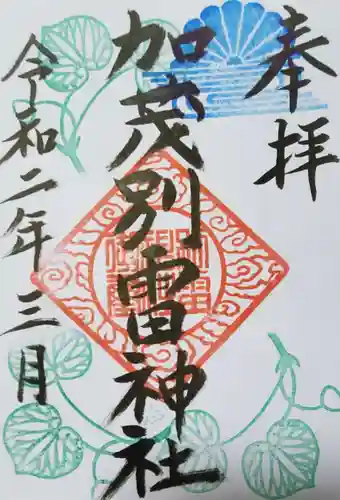 奉拝
加茂別雷神社
令和二年三月